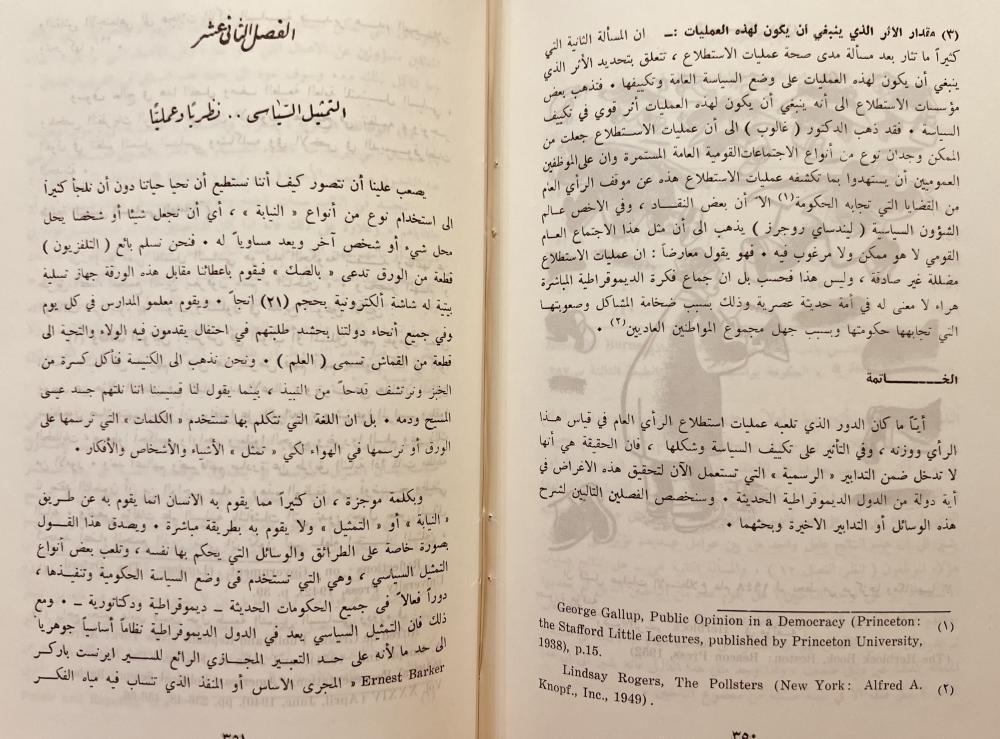 (٣) مقدار الاثر الذي ينبغي ان يكون لهذه العمليات :ــ ان المسألة الثانية التي
كثيراً ما تثار بعد مسألة مدى صحة عمليات الاستطلاع ، تتعلق بتحديد الأثر الذي
ينبغي أن يكون لهذه العمليات على وضع السياسة العامة وتكييفها ٠ فتذهب بعض
مؤسسات الاستطلاع الى أنه ينبغي أن يكون لهذه العمليات أثر قوي في تكييف
السياسة ٠ فقد ذهب الدكتور ( غالوب ) الى أن عمليات الاســتطلاع جعلت من
الممكن وجدان نوع من أنواع الاجتماعات القومية العامة المستمرة وان على الموظفين
العموميين أن يستهدوا بما تكشفه عمليات الاستطلاع هذه عن موقف الرأي العام
من القضايا التي تجابه الحكومة(١) الاّ أن بعض النقــاد ، وفي الاخص عــالم
الشؤون السياسية ( ليندساي روجرز ) يذهب الى أن مثل هذا الاجتماع العــام
القومي لا هو ممكن ولا مرغوب فيه ٠ فهو يقول معارضاً : ان عمليات الاستطلاع
مضللة غير صادقة ، وليس هذا فحسب بل ان جماع فكرة الديموقراطية المباشرة
هراء لا معنى له في أمة حديثة عصرية وذلك بسبب ضخامة المشاكل وصعوبتهــا
التي تجابهها حكومتها وبسبب جهل مجموع المواطنين العاديين(٢) ٠
الخــــــــاتمة
أيــّا ما كان الدور الذي تلعبه عمليات استطلاع الرأي العام في قياس هــذا
الرأي ووزنه ، وفي التأثير على تكييف السياسة وشكلها ، فان الحقيقة هي أنها
لا تدخل ضمن التدابير « الرسمية » التي تستعمل الآن لتحقيق هذه الاغراض في
أية دولة من الدول الديموقراطية الحديثة ٠ وسنخصص الفصلين التاليين لشرح
هذه الوسائل أو التدابير الاخيرة وبحثهما ٠
(١) George Gallup, Public Opinion in a Democracy (Princeton:
the Stafford Little Lectures, published by Princeton University,
1938), p.15.
(٢) Lindsay Rogers, The Pollsters (New York: Alfred A.
Knopf., Inc., 1949) .
٣٥٠
الفصل الثاني عشر
التمثيل السياسي .. نظريا وعمليًا
يصعب علينا أن نتصور كيف أننا نستطيع أن نحيا حياتنا دون أن نلجأ كثيراً
الى استخدام نوع من أنواع « النيابة » ، أي أن نجعل شيئا أو شخصا يحل
محل شيء أو شخص آخر ويعد مساوياً له ٠ فنحن نسلم بائع ( التلفزيون )
قطعة من الورق تدعى « بالصك » فيقوم باعطائنا مقابل هذه الورقة جهاز تسلية
بيتية له شاشة ألكترونية بحجم (٢١) انجاً ٠ ويقوم معلمو المدارس في كل يوم
وفي جميع أنحاء دولتنا بحشد طلبتهم في احتفال يقدمون فيه الولاء والتحية الى
قطعة من القماش تسمى ( العلم ) ٠ ونحن نذهب الى الكنيسة فنأكل كسرة من
الخبز ونرتشف قدحاً من النبيذ ، بينما يقول لنا قسيسنا اننا نلتهم جسد عيسى
المسيح ودمه ٠ بل ان اللغة التي نتكلم بها تستخدم « الكلمات » التي ترسمها على
الورق أو ترسمها في الهواء لكي « تمثل » الأشياء والأشخاص والأفكار ٠
وبكلمة موجزة ، ان كثيراً مما يقوم به الانسان انما يقوم به عن طــريق
« النيابة » أو « التمثيل » ولا يقوم به بطريقة مباشرة ٠ ويصدق هذا القــول
بصورة خاصة على الطرائق والوسائل التي يحكم بها نفسه ، وتلعب بعض أنواع
التمثيل السياسي ، وهي التي تستخدم في وضع السياسة الحكومية وتنفيذها ،
دوراً فعالاً في جميع الحكومات الحديثة ــ ديموقراطية ودكتاتورية ــ ٠ ومع
ذلك فان التمثيل السياسي يعد في الدول الديموقراطية نظاماً أساسياً جوهرياً
الى حد ما لأنه على حــد التعبير المجــازي الرائع للســير ايرنست باركــر
Ernest Barker « المجرى الاساس أو المنفذ الذي تنساب فيه مياه الفكــر
٣٥١